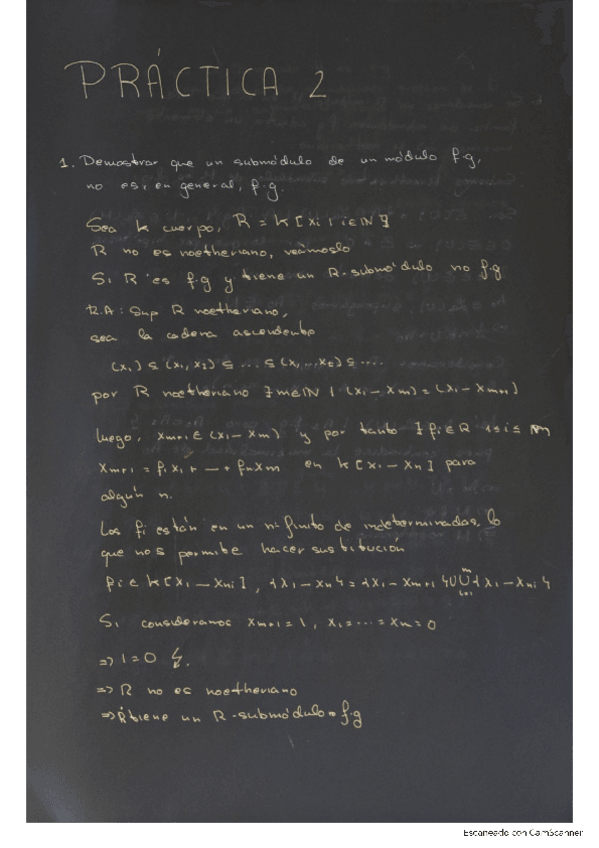 PRÁCTICA 2
1. Demostrar que un submódulo de un módulo f.g,
no es, en general, f.g.
Sea k cuerpo, R = k[xi | i∈N]
R no es noetheriano, veámoslo
Si R es f.g y tiene un R-submódulo no f.g
R.A: Sup R noetheriano,
sea la cadena ascendente
(x₁) ⊆ (x₁, x₂) ⊆ ... ⊆ (x₁, ... xₙ) ⊆ ....
por R noetheriano ∃ m∈N | (x₁ — xₘ) = (x₁ — xₘ₊₁)
luego, xₘ₊₁ ∈ (x₁ — xₘ) y por tanto ∃ fi∈R 1≤i≤m
xₘ₊₁ = f₁x₁ + — + fₘxₘ en k[x₁ — xₙ] para
algún n.
Los fi están en un nº finito de indeterminadas, lo
que nos permite hacer sustitución
fi ∈ k[x₁ — xₙᵢ], {x₁ — xₙ} = {x₁ — xₘ₊₁} ∪ ⋃ᵢ₌₁ᵐ {x₁ — xₙᵢ}
Si consideramos xₘ₊₁ = 1, x₁ = ... = xₘ = 0
=> 1 = 0
=> R no es noetheriano
=> R tiene un R-submódulo f.g
Escaneado con CamScanner